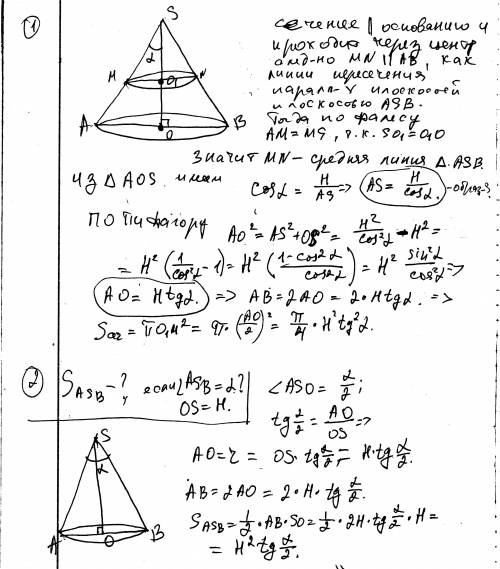 1
S
α
M
O₁
N
A
O
B
сечение || основанию и
проходит через центр
MN || AB, как
линии пересечения
парал-х плоскостей
плоскостью ASB.
Тогда по Фалесу
AM=MS, т.к. SO₁=O₁O
Значит MN - средняя линия △ASB.
Из △AOS имеем
cosα = H/AS => AS = H/cosα - образ.
По Пифагору AO²=AS²+OS² = H²/cos²α - H² =
= H²(1/cos²α - 1) = H²((1-cos²α)/cos²α) = H² sin²α/cos²α =>
AO = Htgα. => AB=2AO = 2·Htgα. =>
Sсеч = πO₁M² = π·(AO/2)² = π/4 · H²tg²α.
2
S_ASB - ?, если ∠ASB=α?
OS=H.
∠ASO = α/2;
tg α/2 = AO/OS =>
AO=r = OS·tg α/2 = H·tg α/2.
AB=2AO = 2·H·tg α/2.
S_ASB = 1/2·AB·SO = 1/2·2H·tg α/2·H =
= H² tg α/2.
S
α
A
O
B